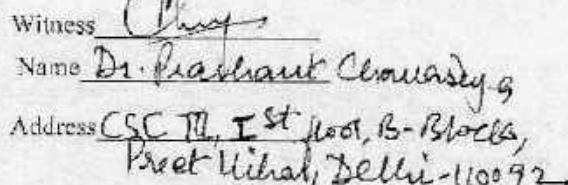 Witness
Name Dr. Prashant Chourasiya
Address CSC III, Ist floor, B-Block,
Preet Vihar, Delhi-110092